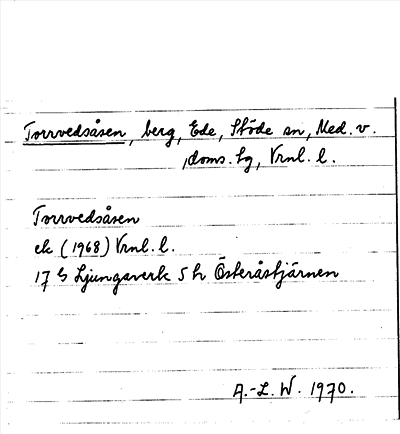 Torrvedsåsen, berg, Ede, Stöde sn, Med. v.
doms. tg, Vrnl. l.
Torrvedsåsen
ek (1968) Vrnl. l.
17 G Ljungaverk 5 h Österåstjärnen
A.-L. W. 1970.